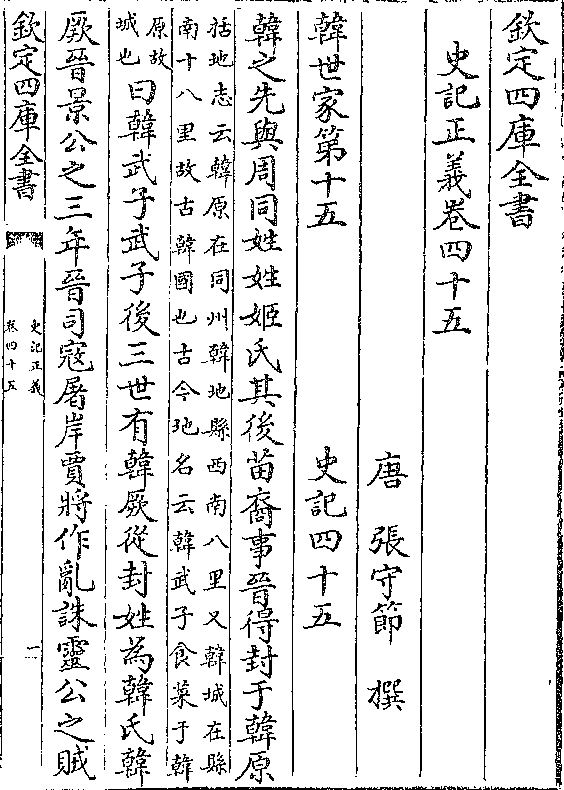 欽定四庫全書
史記正義卷四十五
唐 張守節 撰
韓世家第十五 史記四十五
韓之先與周同姓姓姬氏其後苗裔事晉得封于韓原
括地志云韓原在同州韓地縣西南八里又韓城在縣
南十八里故古韓國也古今地名云韓武子食菜于韓
原故
城也
曰韓武子武子後三世有韓厥從封姓為韓氏韓
厥晉景公之三年晉司寇屠岸賈將作亂誅靈公之賊
欽定四庫全書
史記正義
卷四十五
一